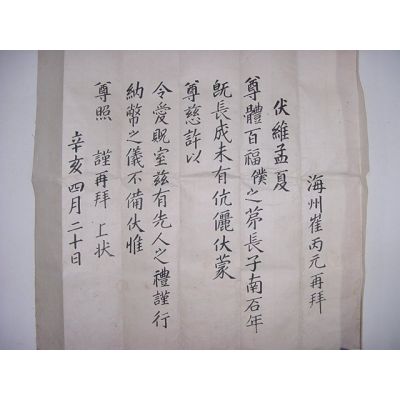 海州崔丙元再拜
伏維孟夏
尊體百福僕之苐長子南石年
旣長成未有伉儷伏蒙
尊慈許以
令愛貺室玆有先人之禮謹行
納幣之儀不備伏惟
尊照 謹再拜 上状
辛亥四月二十日